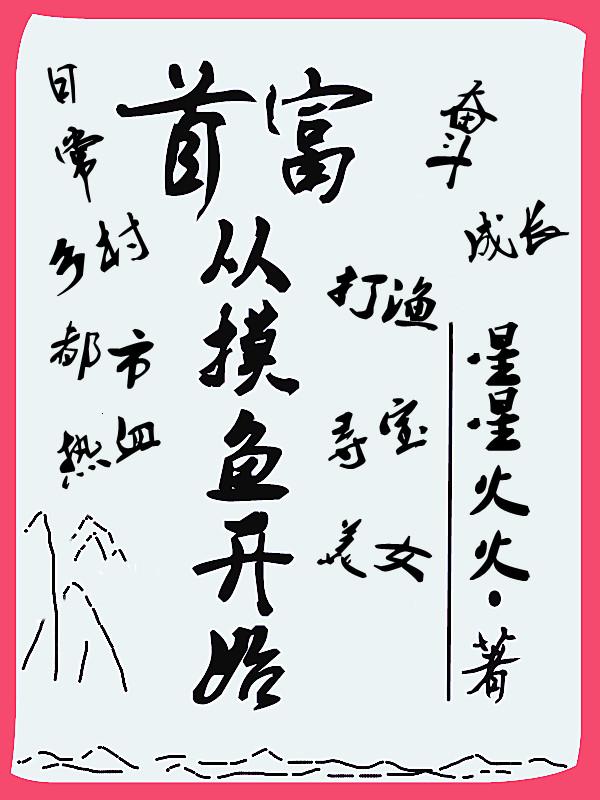 首富
从摸鱼开始
日常
乡村
都市
热血
奋斗
成长
打渔
寻宝
美女
星星火火·著